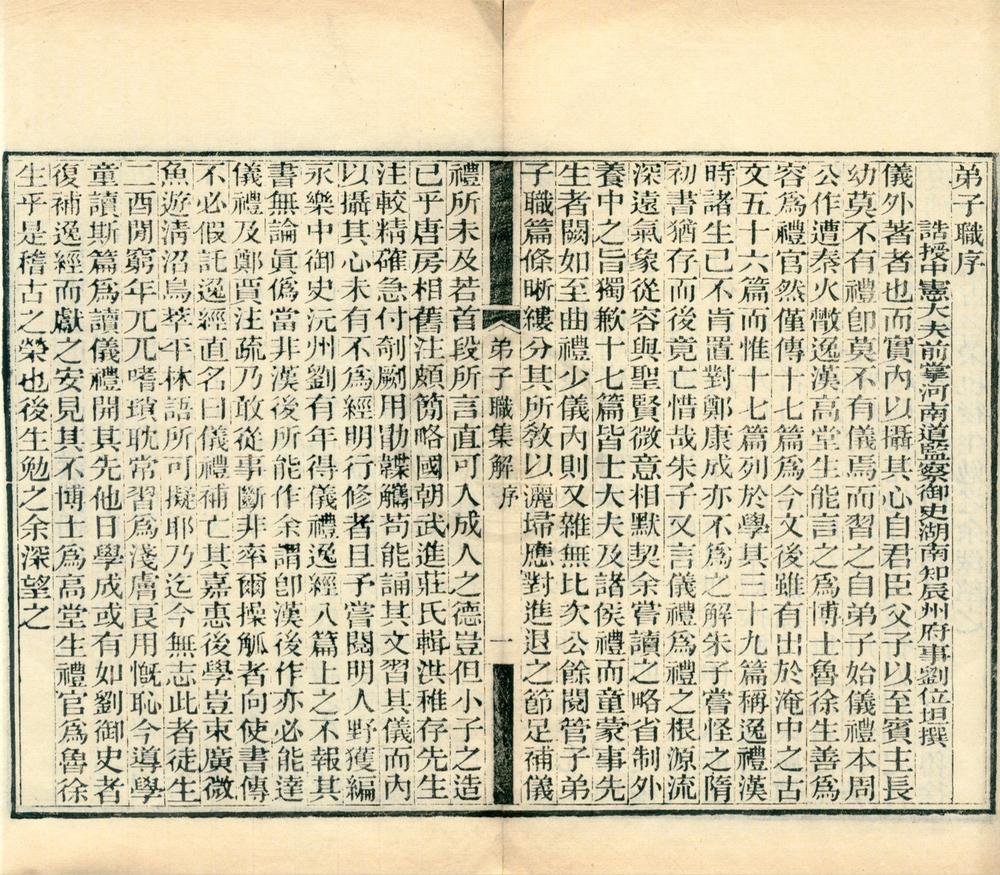 弟子職序
誥授中憲大夫前掌河南道監察御史湖南知辰州府事劉位坦撰
儀外著者也而實內以攝其心自君臣父子以至賓主長
幼莫不有禮卽莫不有儀焉而習之自弟子始儀禮本周
公作遭秦火散逸漢高堂生能言之爲博士魯徐生善爲
容爲禮官然僅傳十七篇爲今文後雖有出於淹中之古
文五十六篇而惟十七篇列於學其三十九篇稱逸禮漢
時諸生已不肯置對鄭康成亦不爲之解朱子嘗怪之隋
初書猶存而後竟亡惜哉朱子又言儀禮爲禮之根源流
深遠氣象從容與聖賢微意相默契余嘗讀之略省制外
養中之旨獨歉十七篇皆士大夫及諸侯禮而童蒙事先
生者闕如至曲禮少儀內則又雜無比次公餘閱管子弟
子職篇條晰縷分其所敎以灑埽應對進退之節足補儀
弟子職集解 序
一
禮所未及若首段所言直可入成人之德豈但小子之造
已乎唐房相舊注頗簡略國朝武進莊氏輯洪稚存先生
注較精確急付剞劂用勖韘觿苟能誦其文習其儀而內
以攝其心未有不爲經明行修者且予嘗閱明人野獲編
永樂中御史沅州劉有年得儀禮逸經八篇上之不報其
書無論眞僞當非漢後所能作余謂卽漢後作亦必能達
儀禮及鄭賈注疏乃敢從事斷非率爾操觚者向使書傳
不必假託逸經直名曰儀禮補亡其嘉惠後學豈束廣微
魚遊淸沼鳥萃平林語所可擬耶乃迄今無志此者徒生
二酉閒窮年兀兀嗜瑣耽常習爲淺膚良用慨恥今導學
童讀斯篇爲讀儀禮開其先他日學成或有如劉御史者
復補逸經而獻之安見其不博士爲高堂生禮官爲魯徐
生乎是稽古之榮也後生勉之余深望之